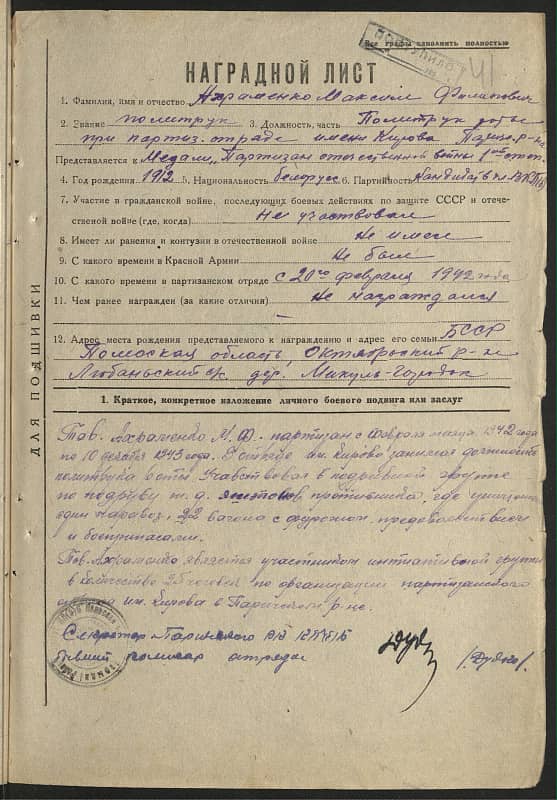 Все графы заполнить полностью
ПОСТУПИЛО
41
НАГРАДНОЙ ЛИСТ
1. Фамилия, имя и отчество Ахраменко Максим Филипович
2. Звание политрук 3. Должность, часть Политрук роты
при партиз. отряде имени Кирова Парич. р-на
Представляется к Медали „Партизан отечественной войны I-ой степ.
4. Год рождения 1912 5. Национальность белорус 6. Партийность кандидат чл. ВКП(б)
7. Участие в гражданской войне, последующих боевых действиях по защите СССР и отече-
ственной войне (где, когда) Не участвовал
8. Имеет ли ранения и контузии в отечественной войне Не имеет
9. С какого времени в Красной Армии Не был
10. С какого времени в партизанском отряде с 20го февраля 1942 года
11. Чем ранее награжден (за какие отличия) Не награждался
12. Адрес места рождения представляемого к награждению и адрес его семьи БССР
Полеская область, Октябрьский р-н
Любаньский с/с дер. Микуль-Городок
ДЛЯ ПОДШИВКИ
1. Краткое, конкретное изложение личного боевого подвига или заслуг
Тов. Ахраменко М.Ф. партизан с февраля месяца 1942 года
по 10 декабря 1943 года. В отряде им. Кирова занимал должность
политрука роты. Учавствовал в подрывной группе
по подрыву ж.д. эшелонов противника, где
один паравоз, 22 вагона с фуражом, продовольствием
и боеприпасами.
Тов. Ахраменко является участником инициативной группы
в количестве 25 человек по организации партизанского
отряда им. Кирова в Паричском р-не.
Секретарь Паричского РК КП(б)Б
бывший комисар отряда